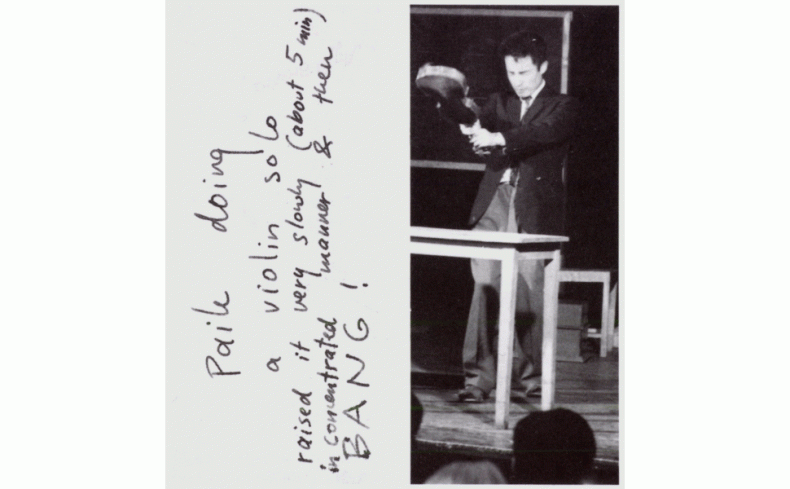 Paik doing
a violin solo
raised it very slowly (about 5 min)
in concentrated manner & then
BANG!